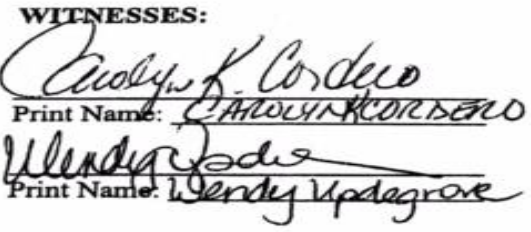 WITNESSES:
Carolyn K. Cordero
Print Name: CAROLYN K CORDERO
Wendy
Print Name: Wendy Updegrove